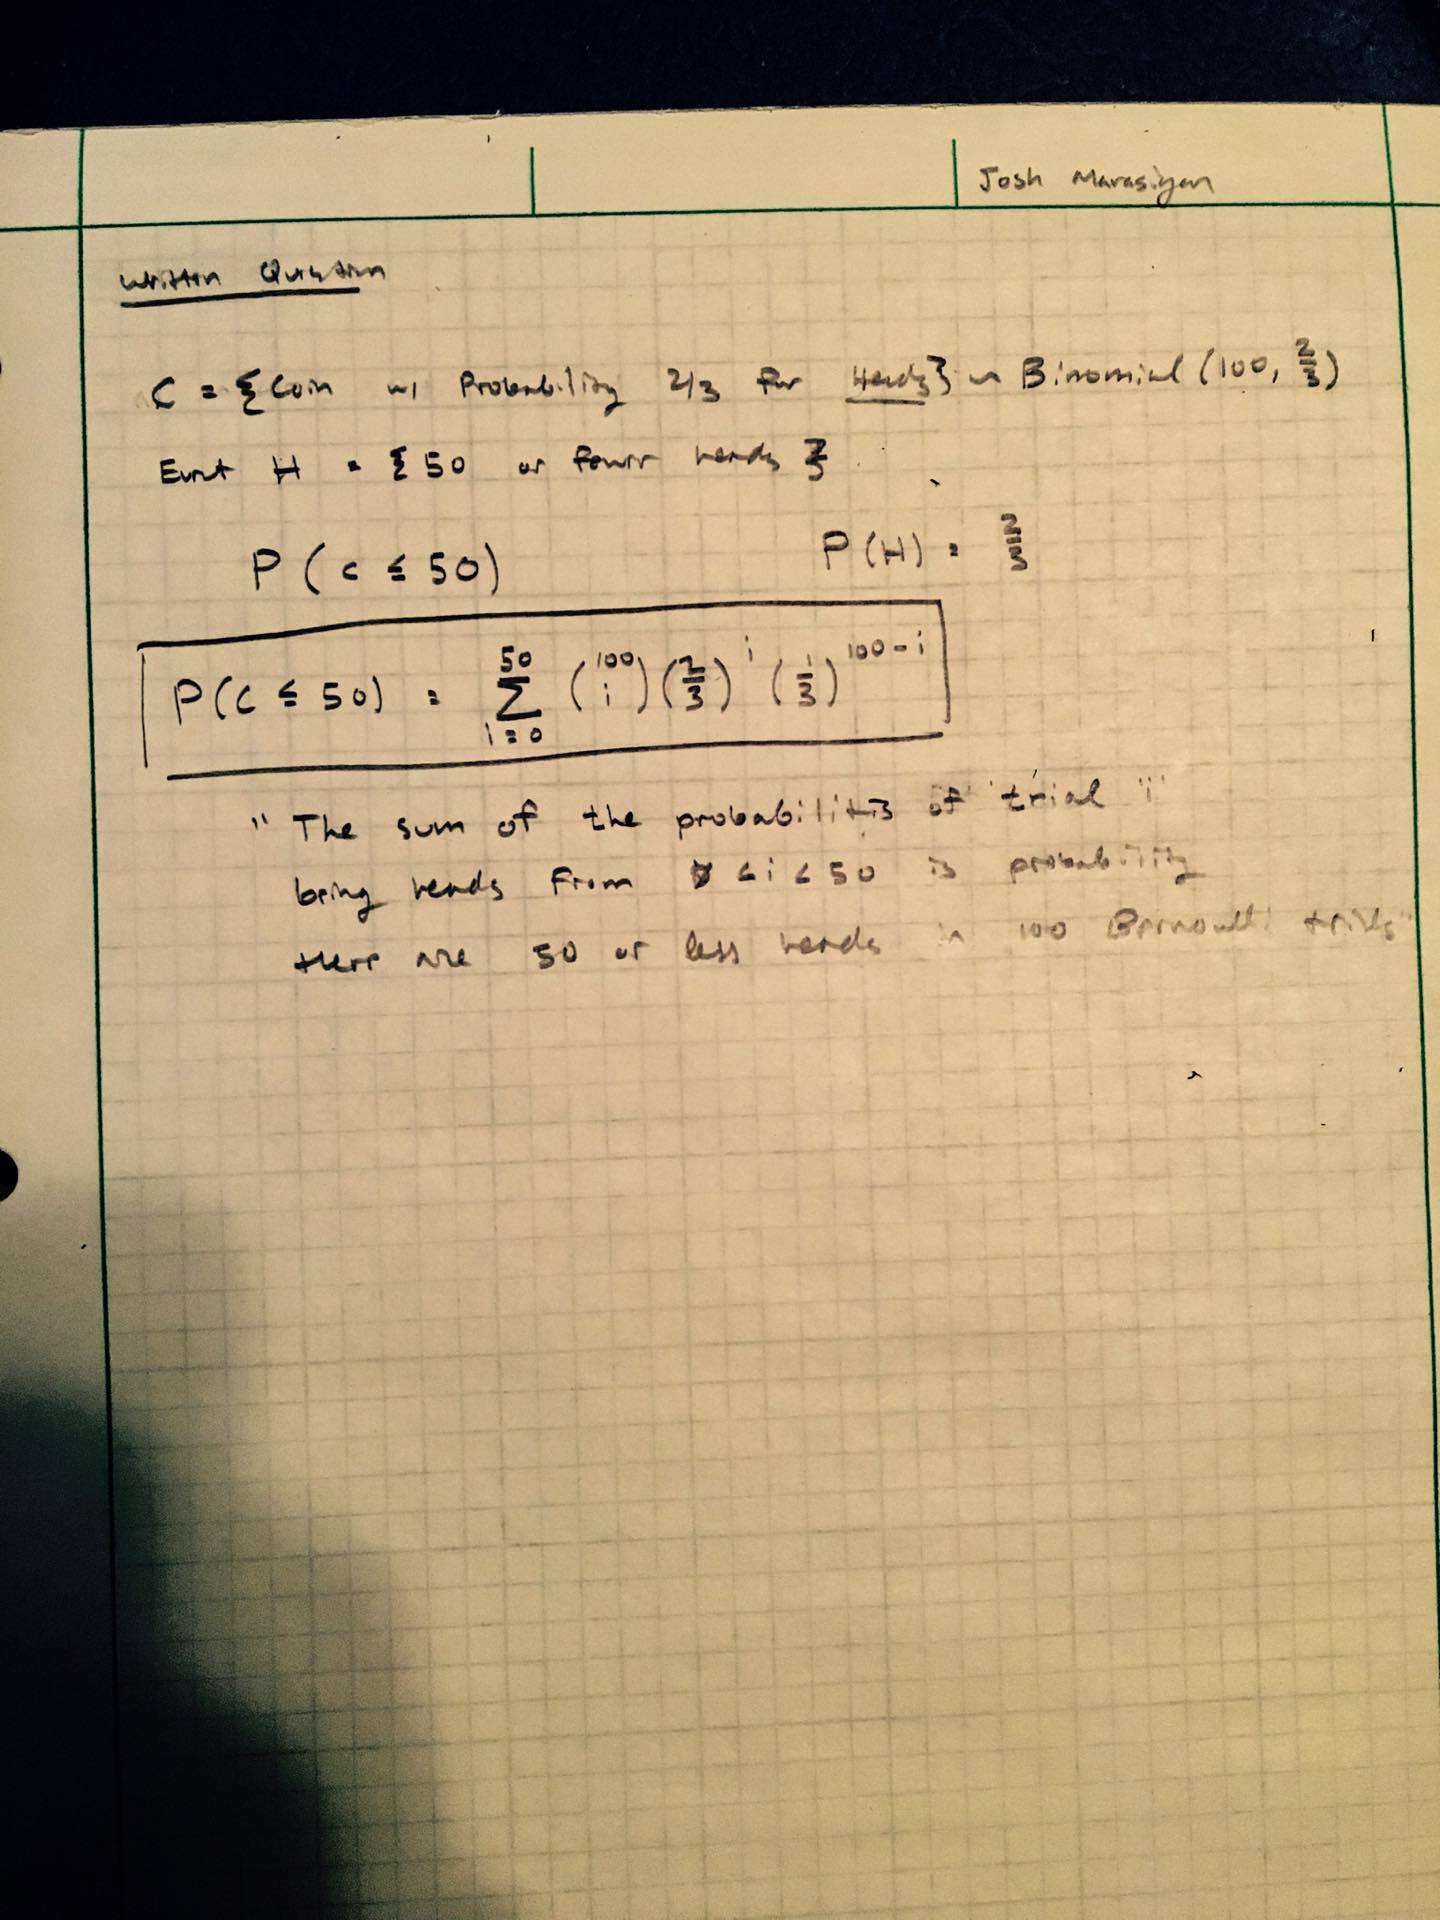 Josh Marasigan
Written Question
C = {Coin w/ Probability 2/3 for Heads} ~ Binomial (100, 2/3)
Event H = {50 or fewer heads}
P(C ≤ 50) P(H) = 2/3
P(C ≤ 50) = 50 Σ i=0 (100 i) (2/3)^i (1/3)^100-i
"The sum of the probabilities of trial "i"
being heads from 0 < i < 50 is probability
there are 50 or less heads in 100 Bernoulli trials"